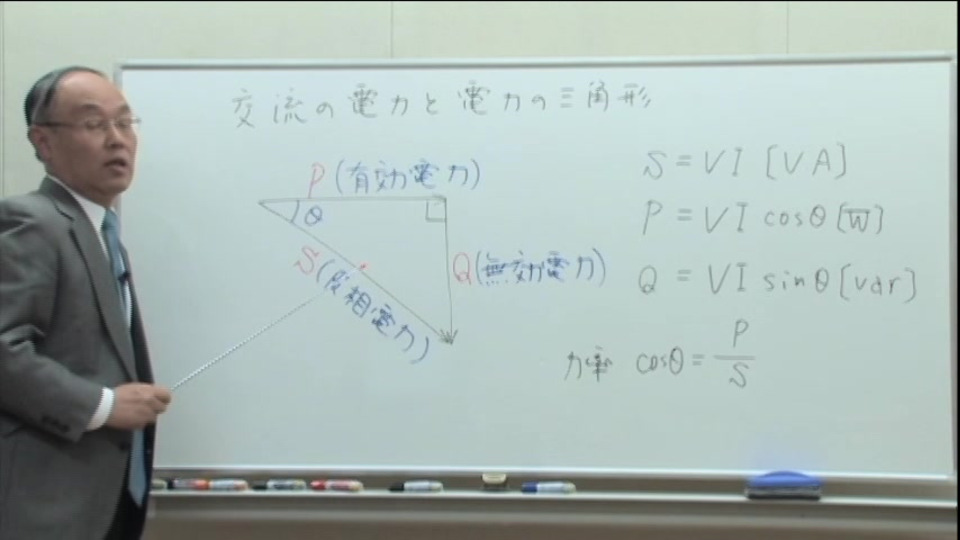 交流の電力と電力の三角形
P (有効電力)
θ
S (皮相電力)
Q (無効電力)
S = VI [VA]
P = VI cosθ [W]
Q = VI sinθ [var]
力率 cosθ = P/S